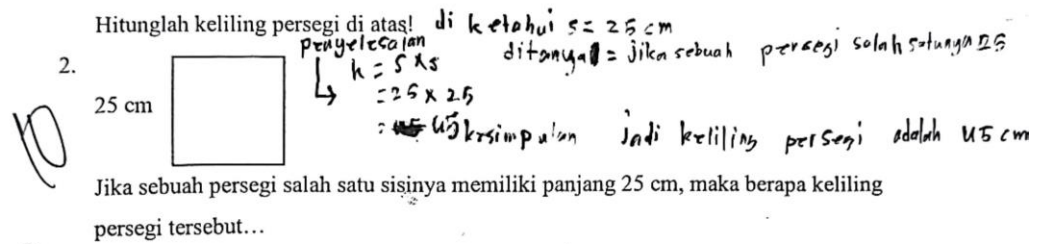 Hitunglah keliling persegi di atas! di ketahui s = 25 cm
penyelesaian ditanya = jika sebuah persegi salah satunya 25
2.
k = s x s
25 cm
= 25 x 25
= 45 kesimpulan jadi keliling persegi adalah 45 cm
10
Jika sebuah persegi salah satu sisinya memiliki panjang 25 cm, maka berapa keliling
persegi tersebut…